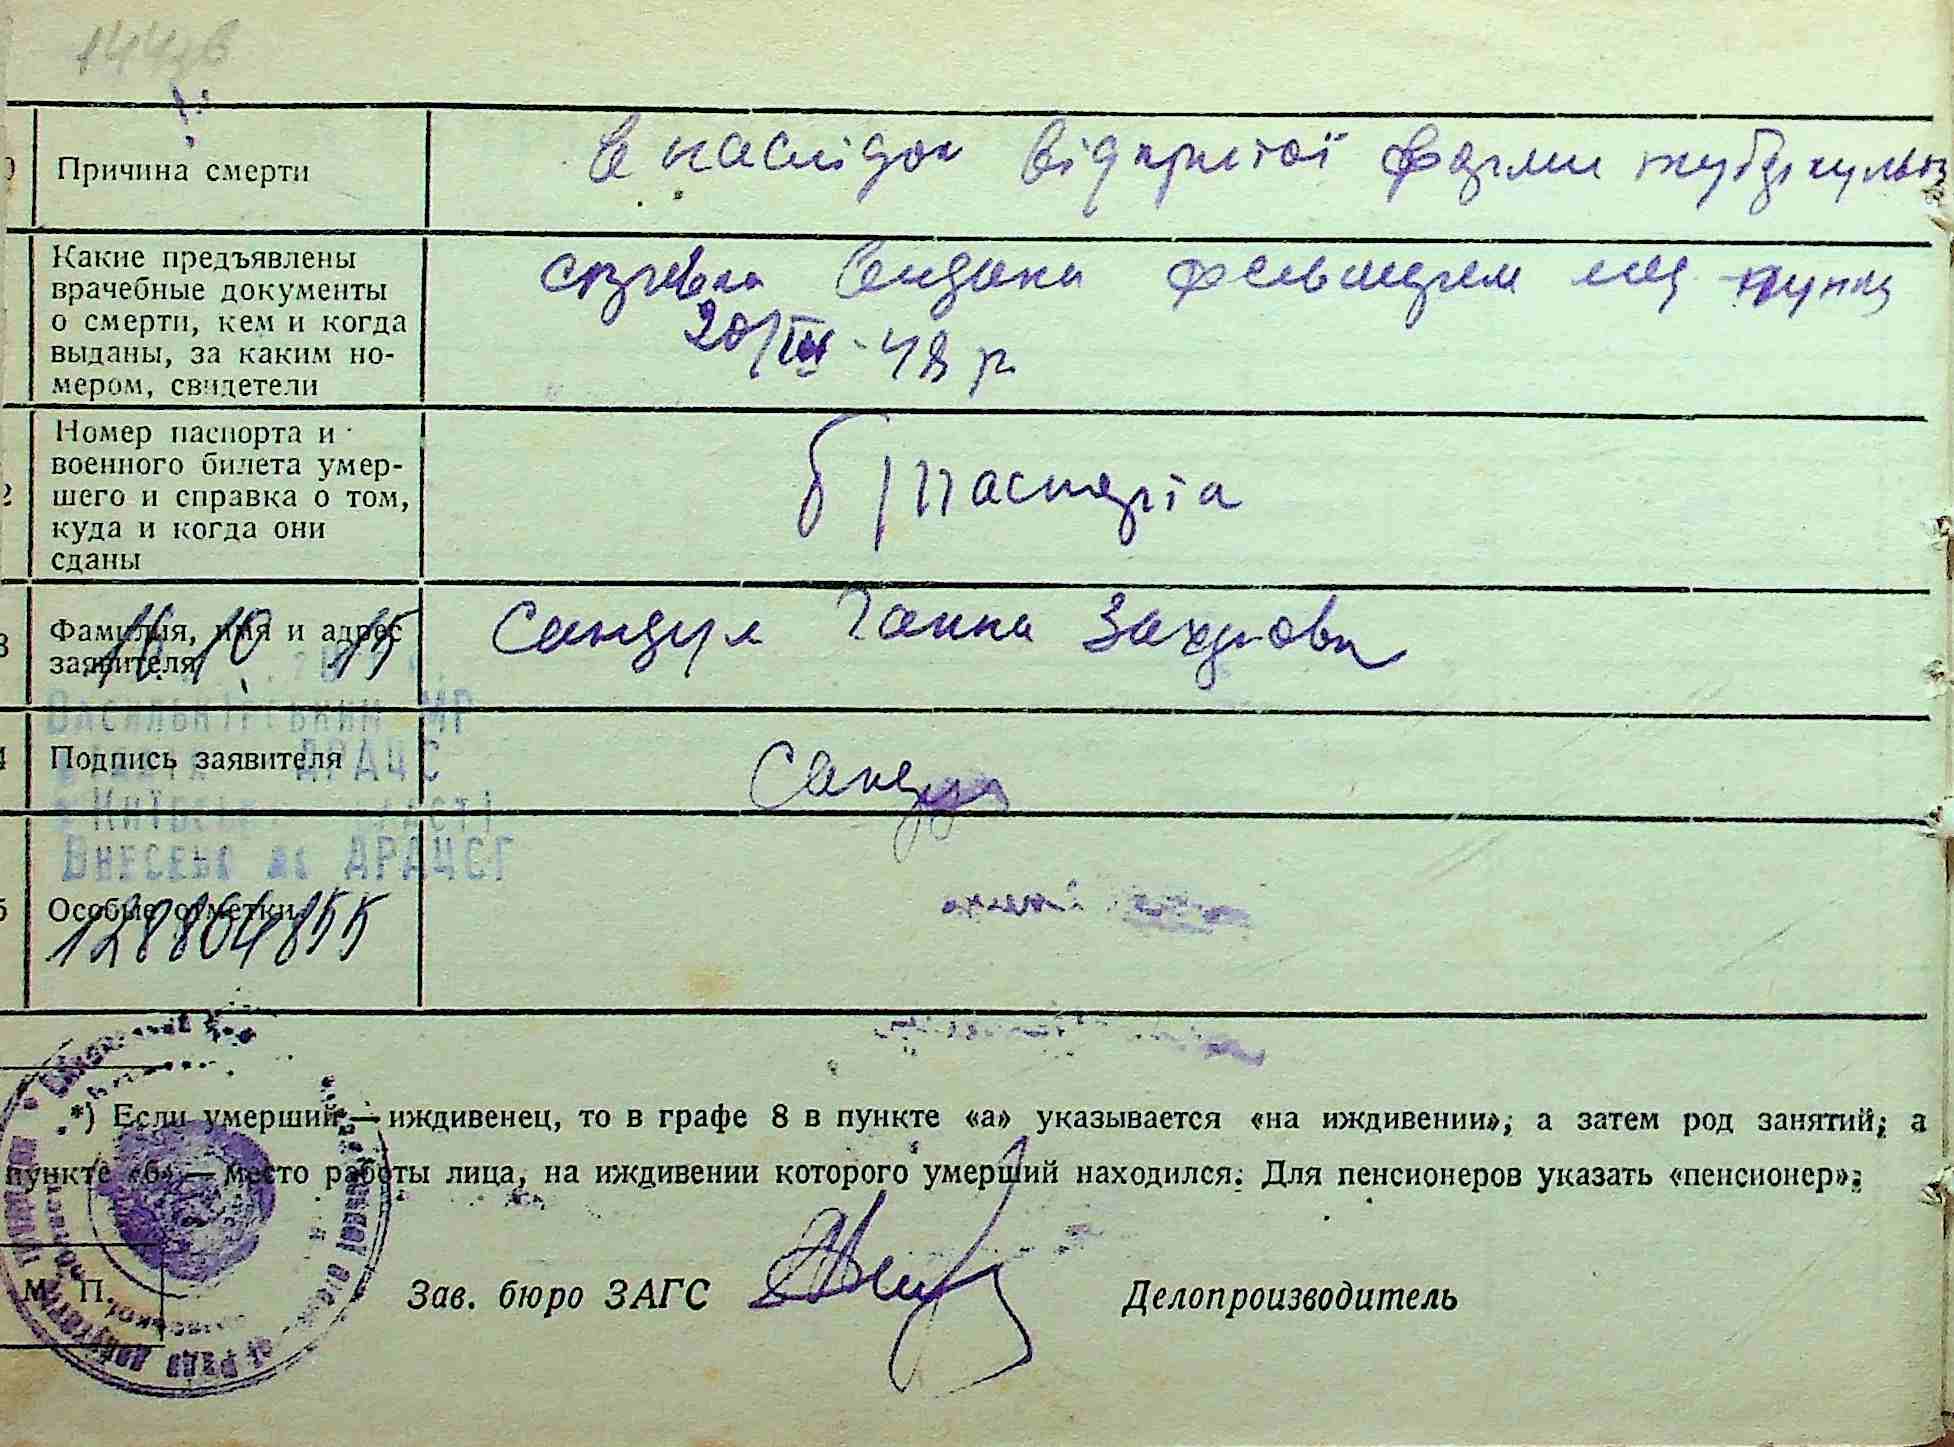 Причина смерти
В наслідок відкритої форми туберкульоз
Какие предъявлены
врачебные документы
о смерти, кем и когда
выданы, за каким но-
мером, свидетели
справка видана фельшером мед пункц
20/III-48 р
Номер паспорта и
военного билета умер-
шего и справка о том,
куда и когда они
сданы
б/паспорта
Фамилия, имя и адрес
заявителя
16.10.15
Сандул Ганна Захарова
Васильківський МР
Подпись заявителя
ДРАЦС
Санду
Київські області
Внесено до ДРАЦСГ
Особые отметки
128864855
*) Если умерший — иждивенец, то в графе 8 в пункте «а» указывается «на иждивении»; а затем род занятий; а
пункте «б» — место работы лица, на иждивении которого умерший находился. Для пенсионеров указать «пенсионер»;
М. П.
Зав. бюро ЗАГС
Делопроизводитель